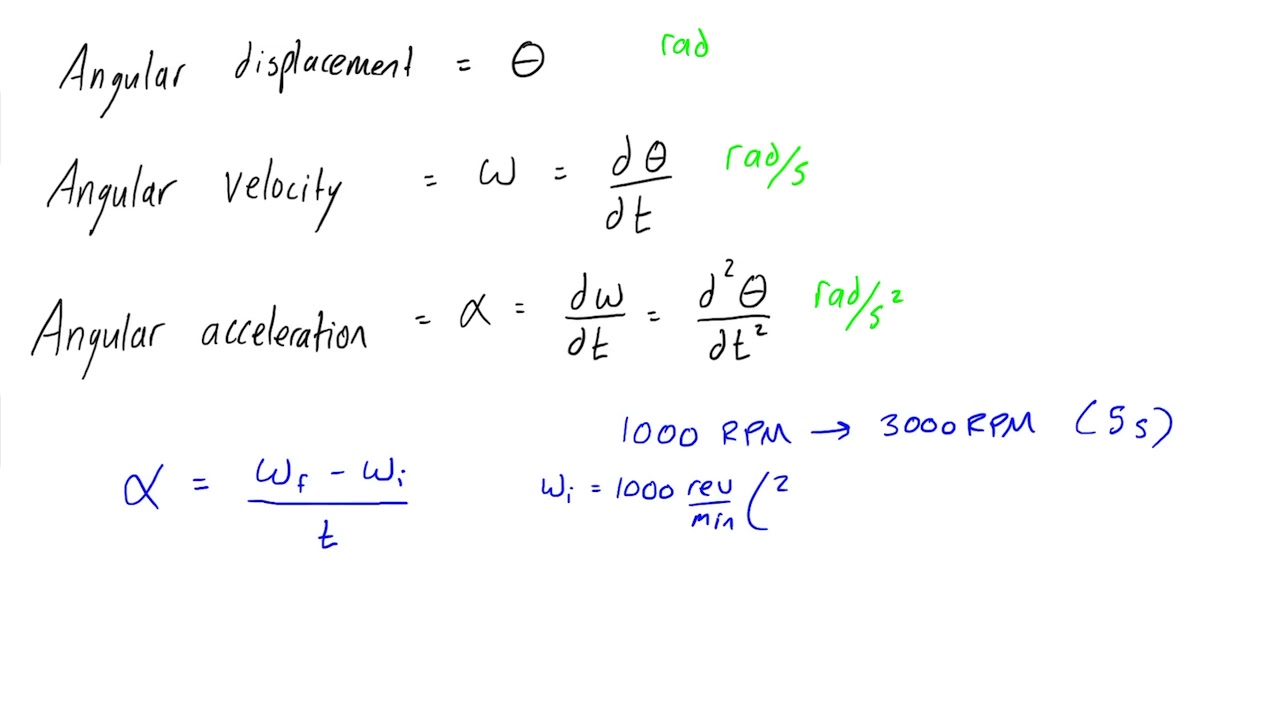 Angular displacement = θ rad
Angular velocity = ω = dθ/dt rad/s
Angular acceleration = α = dω/dt = d²θ/dt² rad/s²
1000 RPM → 3000 RPM (5s)
α = ωf - ωi / t
ωi = 1000 rev/min (2